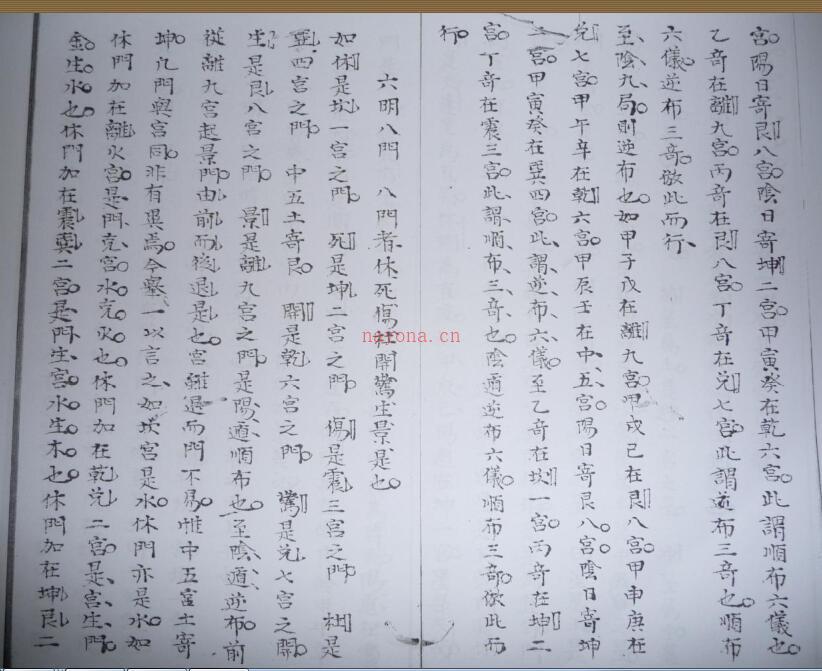 宮陽日寄艮八宮陰日寄坤二宮甲寅癸在乾六宮此謂順布六儀也
乙奇在離九宮丙奇在艮八宮丁奇在兌七宮此謂逆布三奇也順布
六儀逆布三奇倣此而行
至陰九局則逆布也如甲子戊在離九宮甲戌己在艮八宮甲申庚在
兌七宮甲午辛在乾六宮甲辰壬在中五宮陽日寄艮八宮陰日寄坤
二宮甲寅癸在巽四宮此謂逆布六儀至乙奇在坎一宮丙奇在坤二
宮丁奇在震三宮此謂順布三奇也陰遁逆布六儀順布三奇倣此而
行
六明八門 八門者休死傷杜開驚生景是也
如休是坎一宮之門 死是坤二宮之門 傷是震三宮之門 杜是
巽四宮之門 中五土寄艮 開是乾六宮之門 驚是兌七宮之門
生是艮八宮之門 景是離九宮之門是陽遁順布也至陰遁逆布前
從離九宮起景門由前而後退是也宮雖退而門不易惟中五宮土寄
坤凡門與宮同非有異焉今舉一以言之如坎宮是水休門亦是水如
休門加在離火宮是門克宮水克火也休門加在乾兌二宮是宮生門
金生水也休門加在震巽二宮是門生宮水生木也休門加在坤艮二
narona.cn